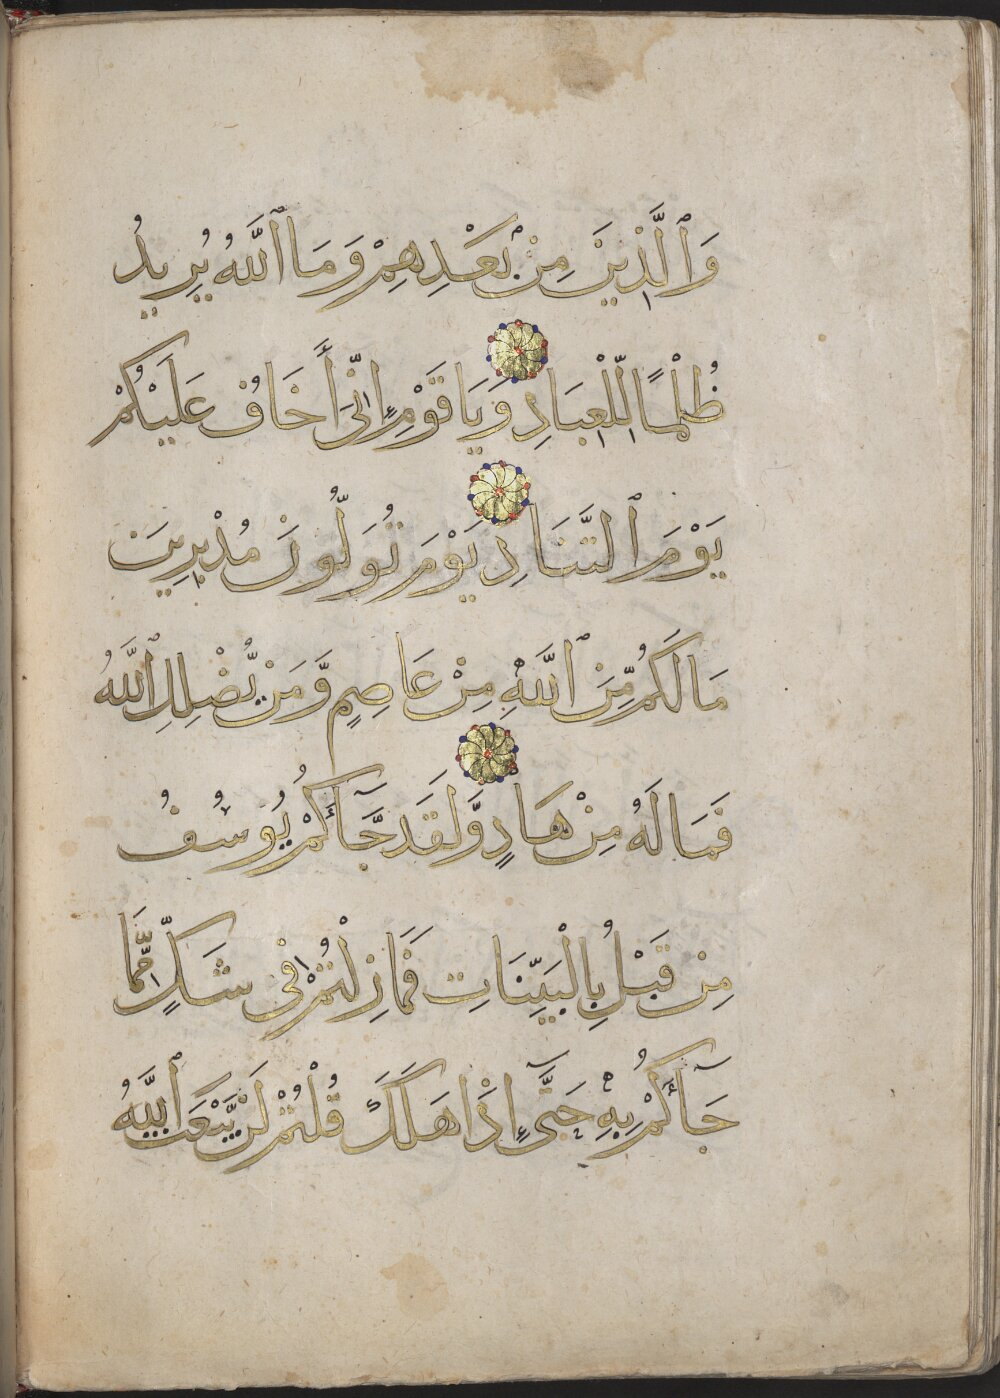 وَٱلَّذِينَ مِنْۢ بَعْدِهِمْ وَمَا ٱللَّهُ يُرِيدُ
ظُلْمًا لِّلْعِبَادِ وَيَا قَوْمِ إِنِّىٓ أَخَافُ عَلَيْكُمْ
يَوْمَ ٱلتَّنَادِ يَوْمَ تُوَلُّونَ مُدْبِرِينَ
مَا لَكُم مِّنَ ٱللَّهِ مِنْ عَاصِمٍ وَّمَن يُّضْلِلِ ٱللَّهُ
فَمَا لَهُ مِنْ هَادٍ وَّلَقَد جَّآءَكُمْ يُوسُفُ
مِن قَبْلُ بِالْبَيِّنَاتِ فَمَا زِلْتُمْ فِى شَكٍّ مِّمَّا
جَآءَكُمْ بِهِ حَتَّىٓ إِذَا هَلَكَ قُلْتُمْ لَن يَّبْعَثَ ٱللَّهُ